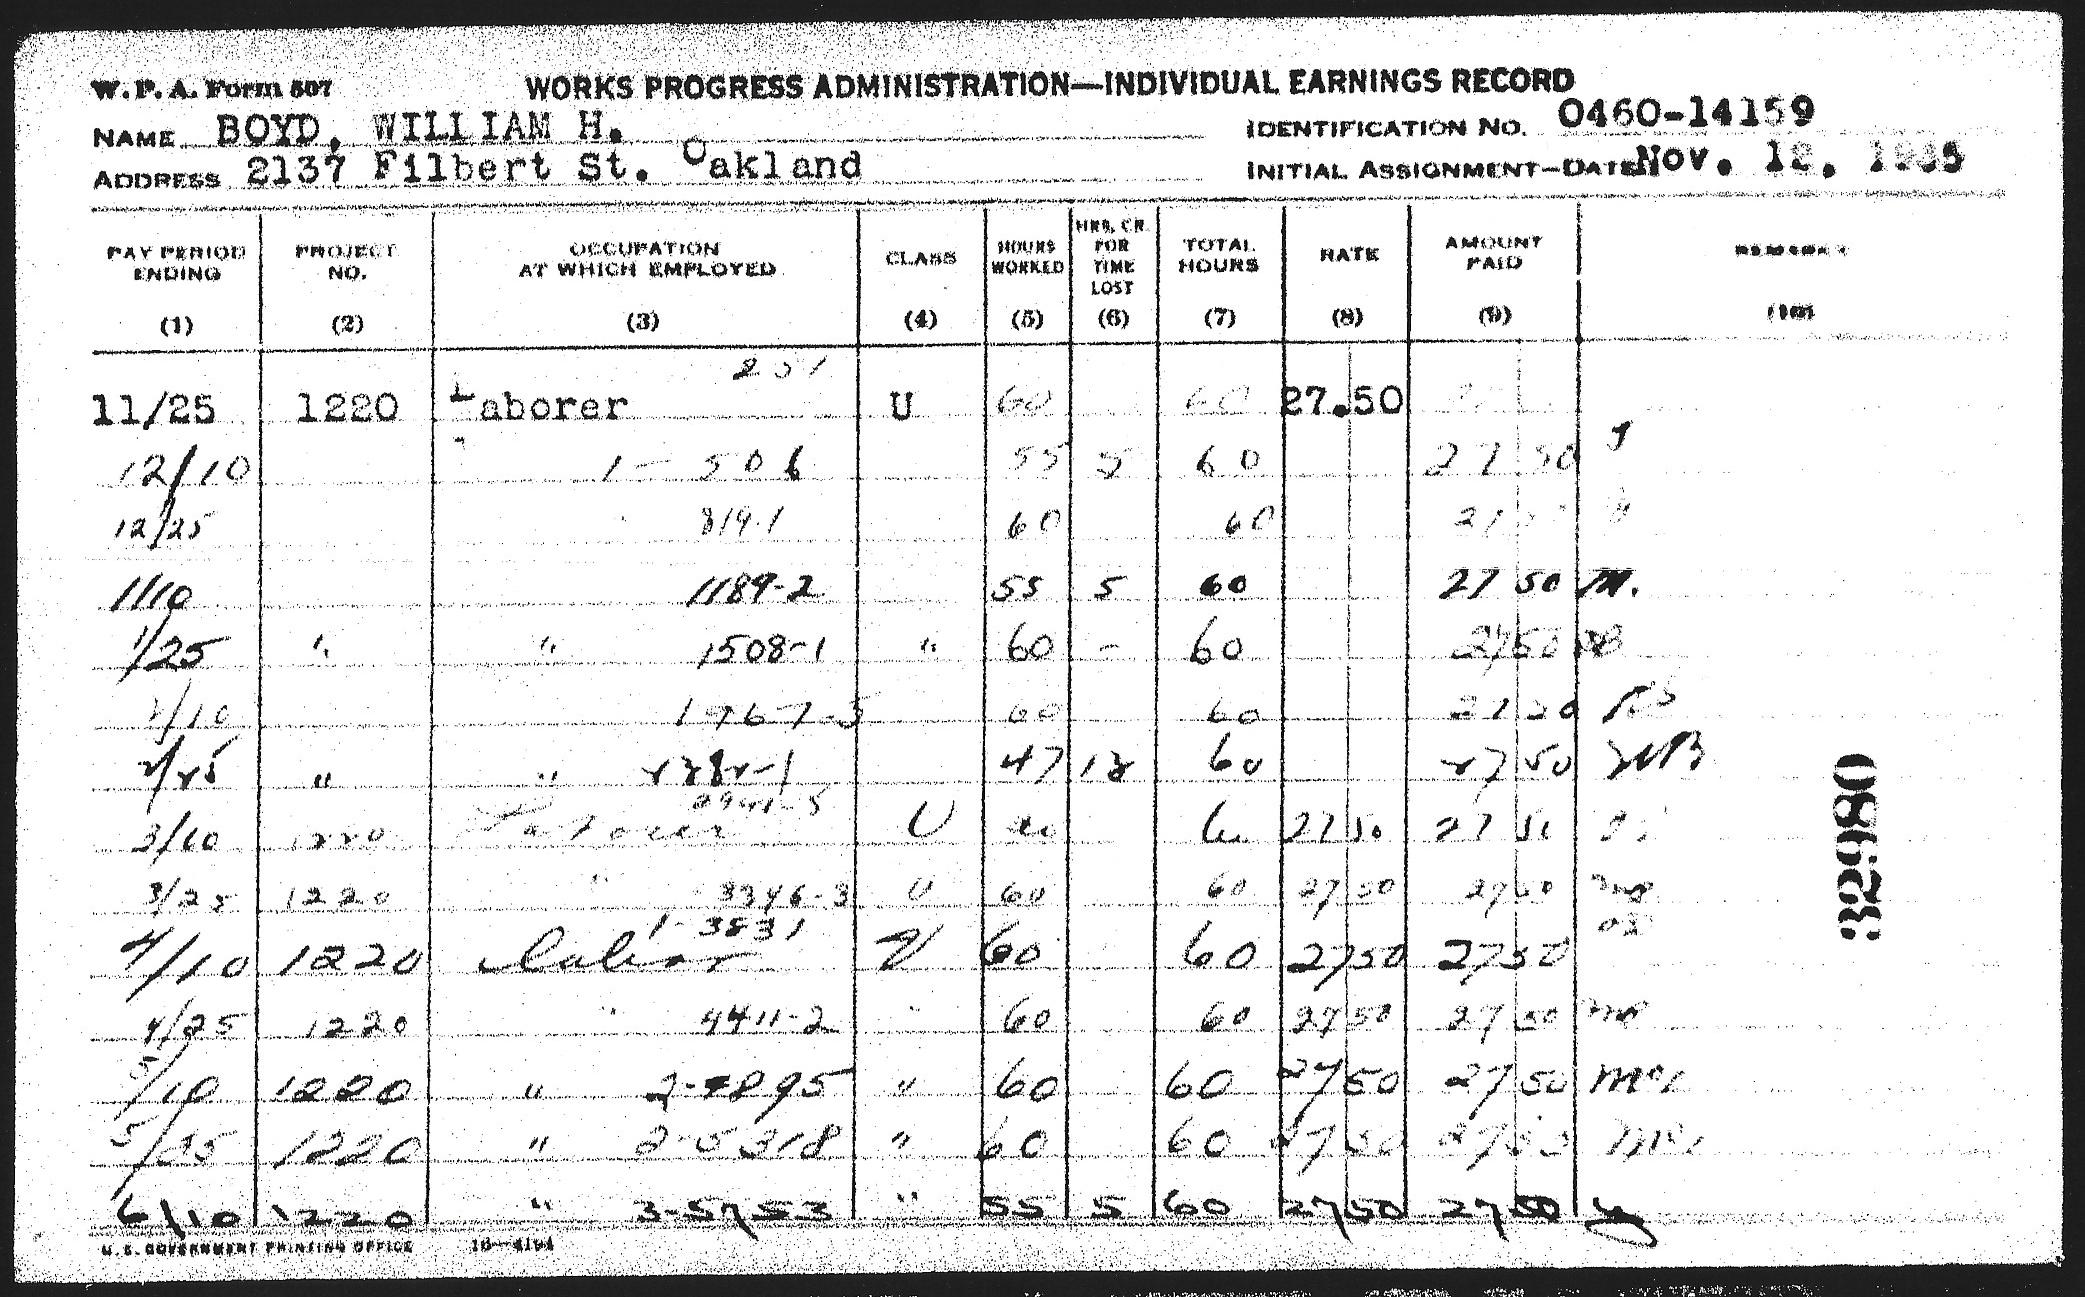 W.P.A. Form 507
WORKS PROGRESS ADMINISTRATION—INDIVIDUAL EARNINGS RECORD
NAME BOYD, WILLIAM H. IDENTIFICATION NO. 0460-14159
ADDRESS 2137 Filbert St. Oakland INITIAL ASSIGNMENT—DATE Nov. 1935
PAY PERIOD ENDING (1) PROJECT NO. (2) OCCUPATION AT WHICH EMPLOYED (3) CLASS (4) HOURS WORKED (5) HRS. CR. FOR TIME LOST (6) TOTAL HOURS (7) RATE (8) AMOUNT PAID (9) REMARKS (10)
251
11/25 1220 Laborer U 60 60 27.50
12/10 1-506 55 5 60 27 50
12/25 819-1 60 60 27
1/10 1189-2 55 5 60 27 50 M.
1/25 " " 1508-1 " 60 - 60 27 50
2/10 1967-5 60 60 27 50
2/25 " " 2282-1 47 13 60 27 50
2941-5
3/10 1220 Laborer U 60 60 27 50 27 50
3/25 1220 " 3346-3 U 60 60 27 50 27 50
1-3831
4/10 1220 Labor U 60 60 27 50 27 50
4/25 1220 " 4411-2 " 60 60 27 50 27 50
5/10 1220 " 2-4895 " 60 60 27 50 27 50
5/25 1220 " 2-5318 " 60 60 27 50 27 50
6/10 1220 " 3-5753 " 55 5 60 27 50 27 50
U.S. GOVERNMENT PRINTING OFFICE 16—4194
32980